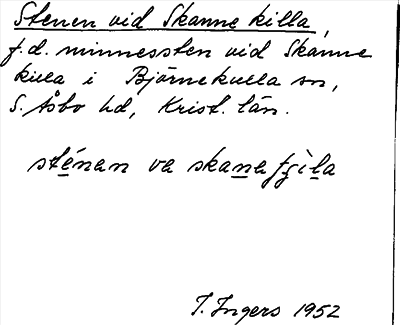 Stenen vid Skanne killa,
f.d. minnessten vid Skanne
killa i Björnekulla sn,
S. Åsbo hd, Krist. län.
sténan va skana
I. Ingers 1952